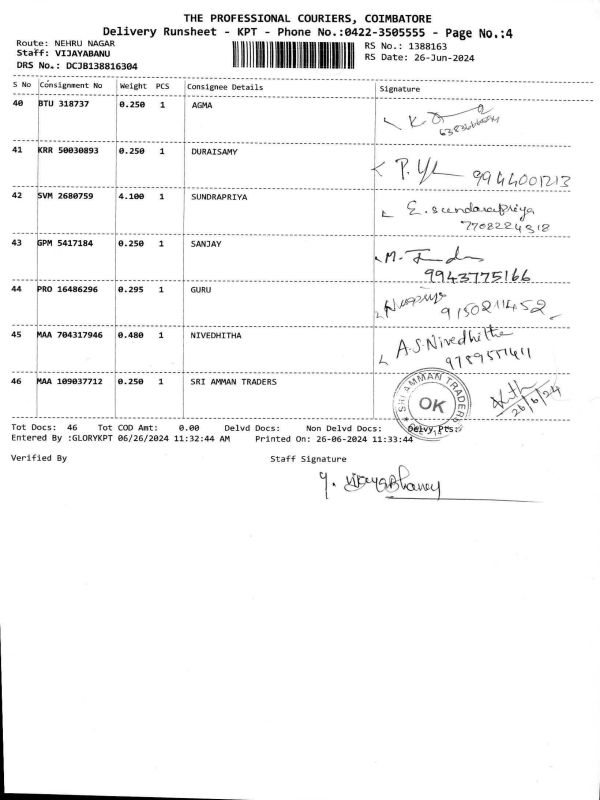 THE PROFESSIONAL COURIERS, COIMBATORE
Delivery Runsheet - KPT - Phone No.:0422-3505555 - Page No.:4
Route: NEHRU NAGAR
Staff: VIJAYABANU
DRS No.: DCJB138816304
RS No.: 1388163
RS Date: 26-Jun-2024
S No Consignment No Weight PCS Consignee Details Signature
40 BTU 318737 0.250 1 AGMA
41 KRR 50030893 0.250 1 DURAISAMY
9944001213
42 SVM 2680759 4.100 1 SUNDRAPRIYA
E. sundarapriya
7708224318
43 GPM 5417184 0.250 1 SANJAY
9943775166
44 PRO 16486296 0.295 1 GURU
45 MAA 704317946 0.480 1 NIVEDHITHA
A.S.Nivedhitha
46 MAA 109037712 0.250 1 SRI AMMAN TRADERS
SRI AMMAN TRADERS
OK
26/6/24
Tot Docs: 46 Tot COD Amt: 0.00 Delvd Docs: Non Delvd Docs: Delvy.Pts:
Entered By :GLORYKPT 06/26/2024 11:32:44 AM Printed On: 26-06-2024 11:33:44
Verified By Staff Signature